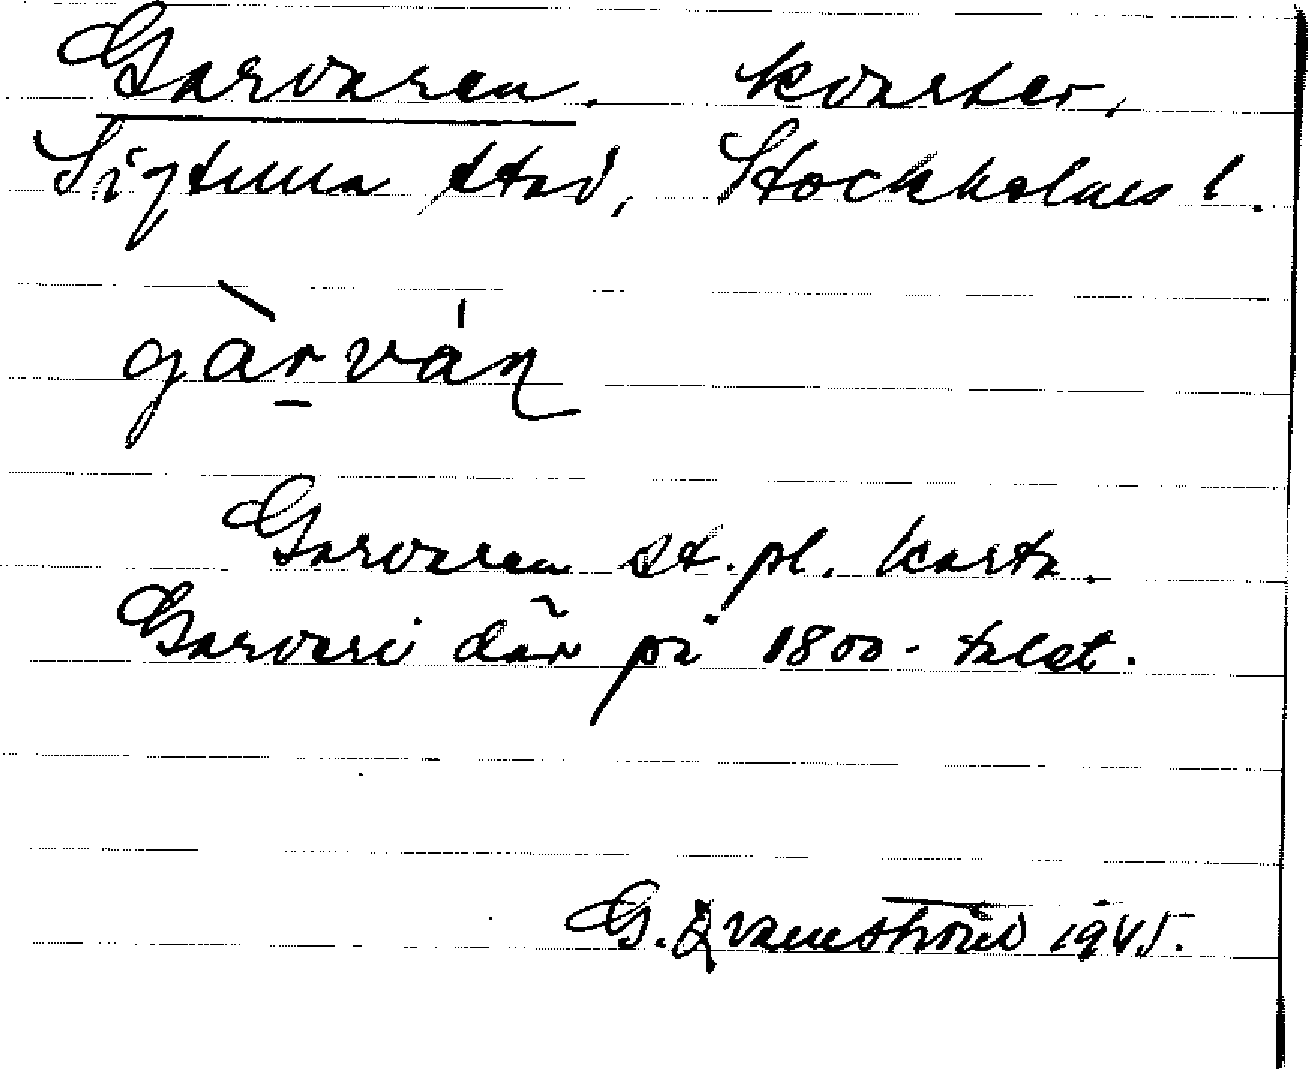 Garvaren. kvarter,
Sigtuna stad, Stockholms l.
gàrván
Garvaren st.pl. karta.
Garveri där på 1800-talet.
G. Qvarnström 1945.